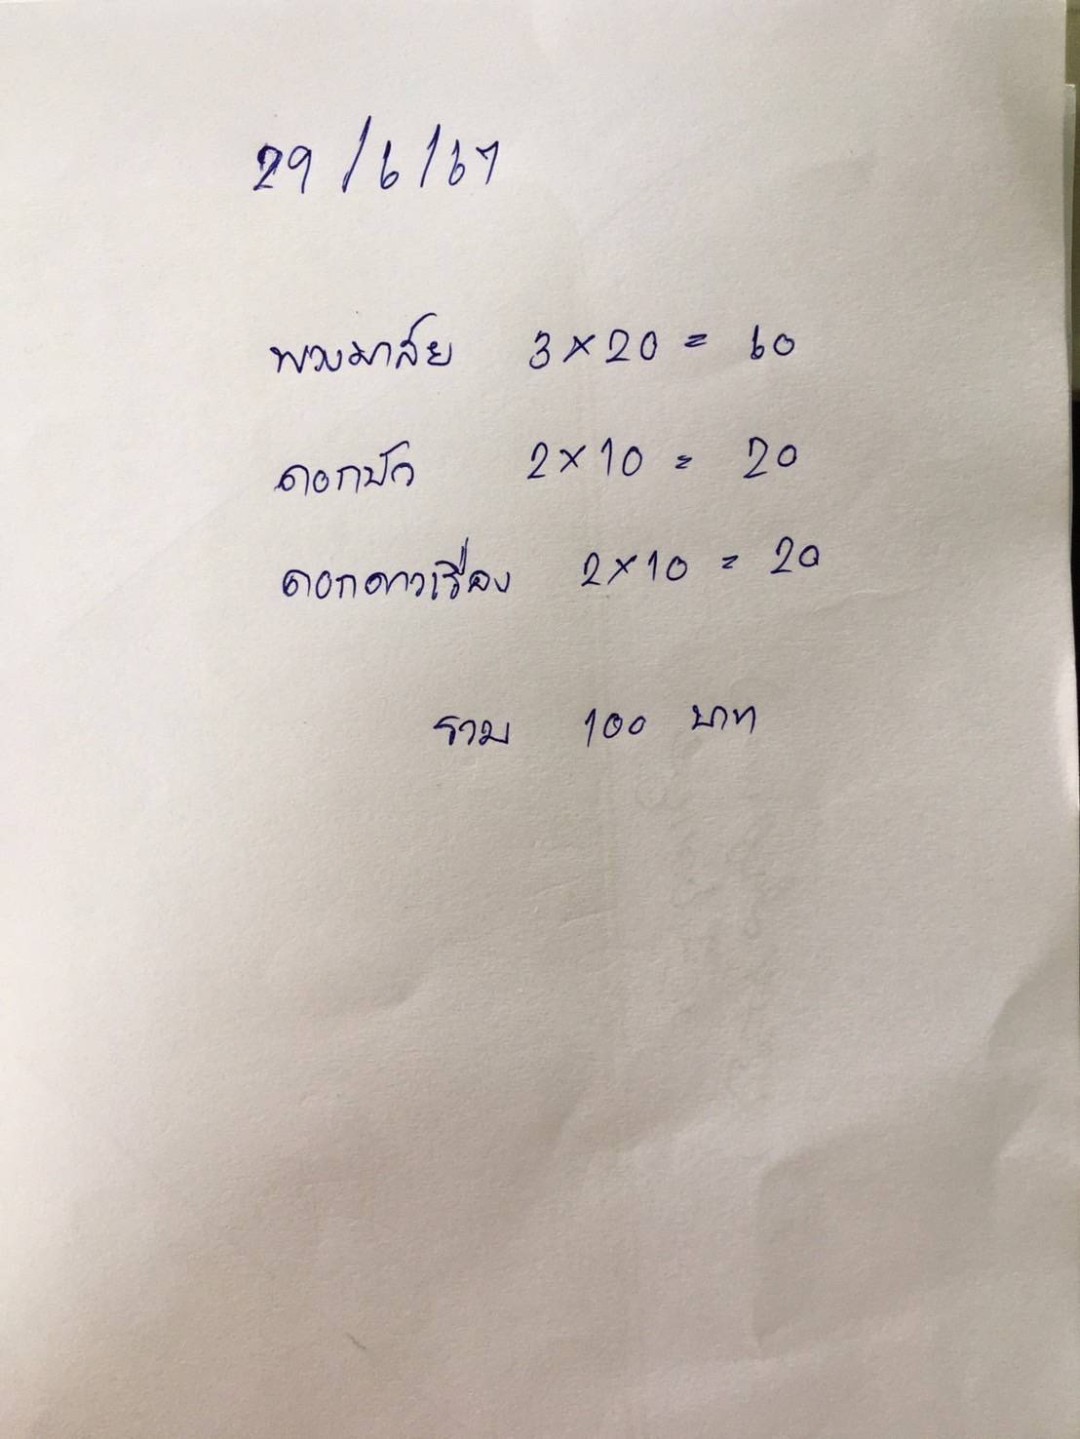 29/6/67
พวงมาลัย 3×20 = 60
ดอกบัว 2×10 = 20
ดอกดาวเรือง 2×10 = 20
รวม 100 บาท